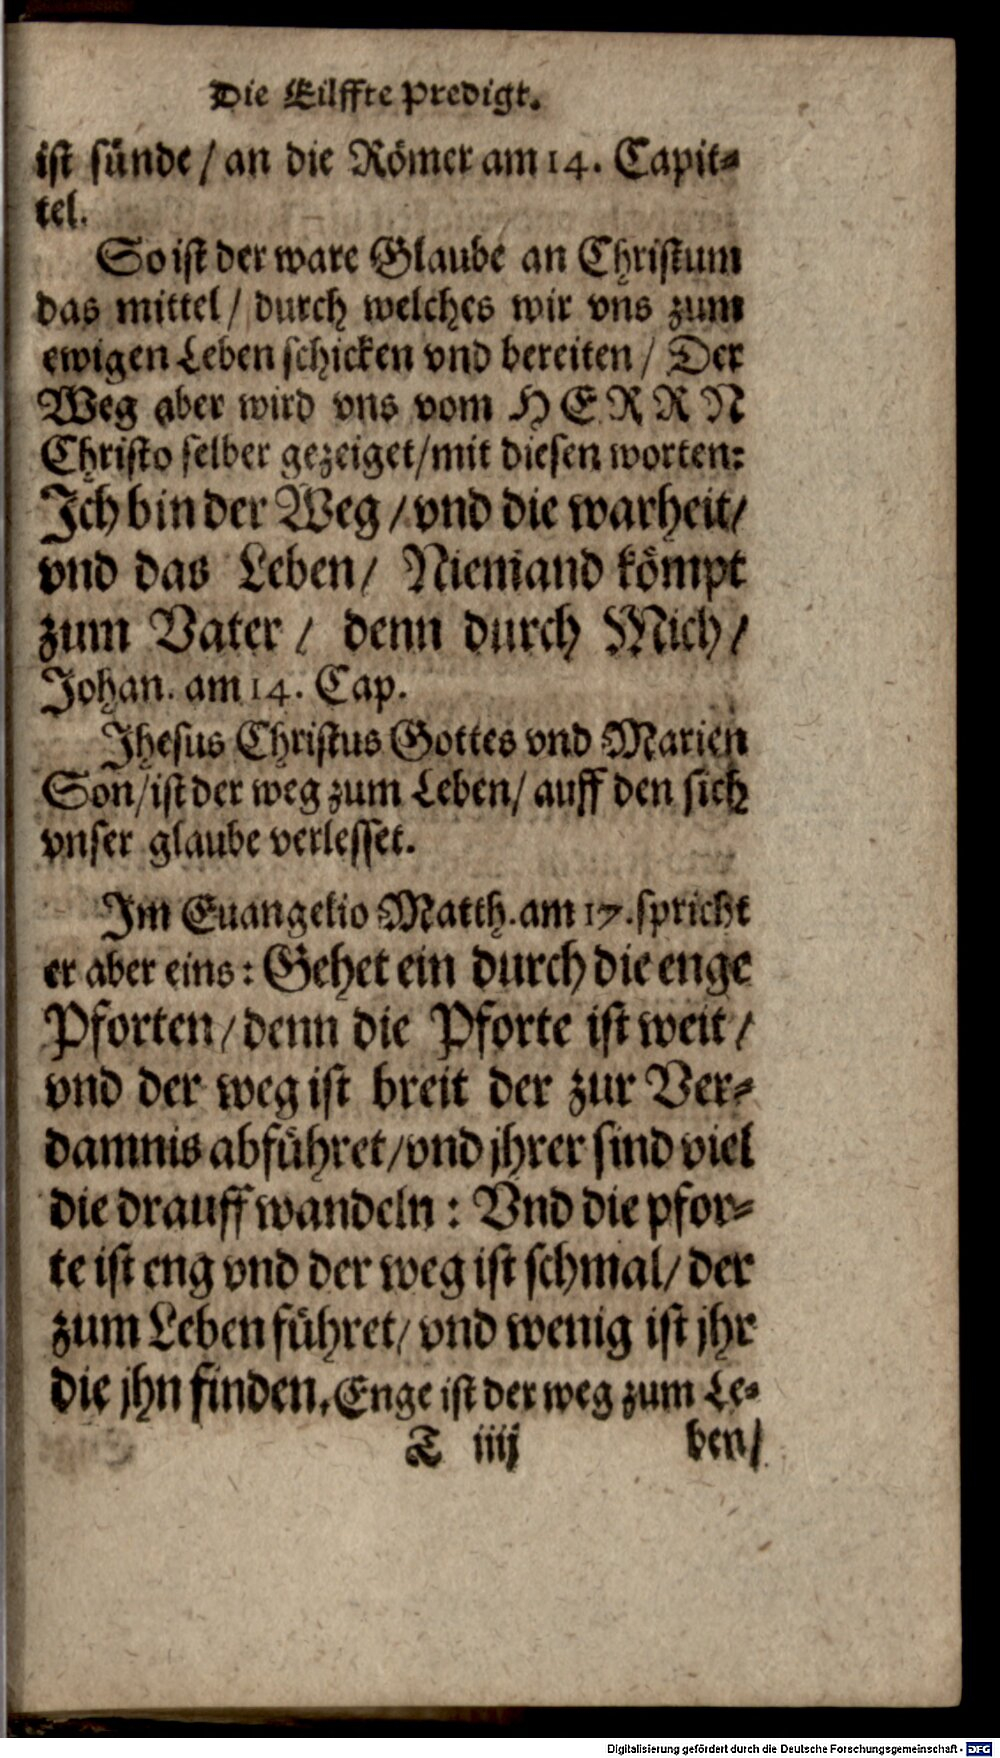 Die Eilffte Predigt.
ist sünde / an die Römer am 14. Capit⸗
tel.
So ist der ware Glaube an Christum
das mittel / durch welches wir vns zum
ewigen Leben schicken vnd bereiten / Der
Weg aber wird vns vom HERRN
Christo selber gezeiget / mit diesen worten:
Ich bin der Weg / vnd die warheit /
vnd das Leben / Niemand kömpt
zum Vater / denn durch Mich /
Johan. am 14. Cap.
Jhesus Christus Gottes vnd Marien
Son / ist der weg zum Leben / auff den sich
vnser glaube verlesset.
Im Euangelio Matth. am 17. spricht
er aber eins: Gehet ein durch die enge
Pforten / denn die Pforte ist weit /
vnd der weg ist breit der zur Ver⸗
damnis abführet / vnd jhrer sind viel
die drauff wandeln: Vnd die pfor⸗
te ist eng vnd der weg ist schmal / der
zum Leben führet / vnd wenig ist jhr
die jhn finden. Enge ist der weg zum Le⸗
T iiij ben /
Digitalisierung gefördert durch die Deutsche Forschungsgemeinschaft - DFG